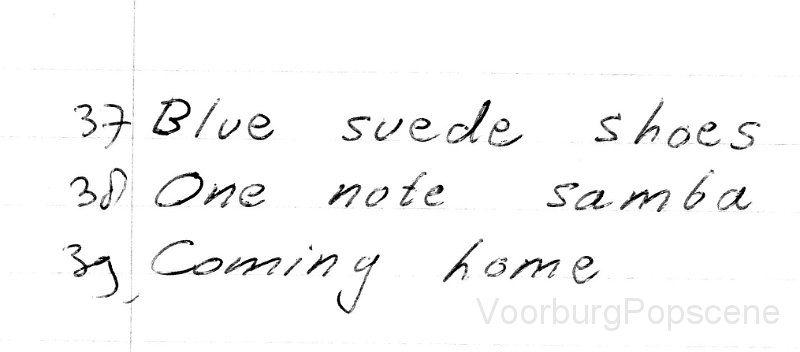 37 Blue suede shoes
38 One note samba
39, Coming home
VoorburgPopscene